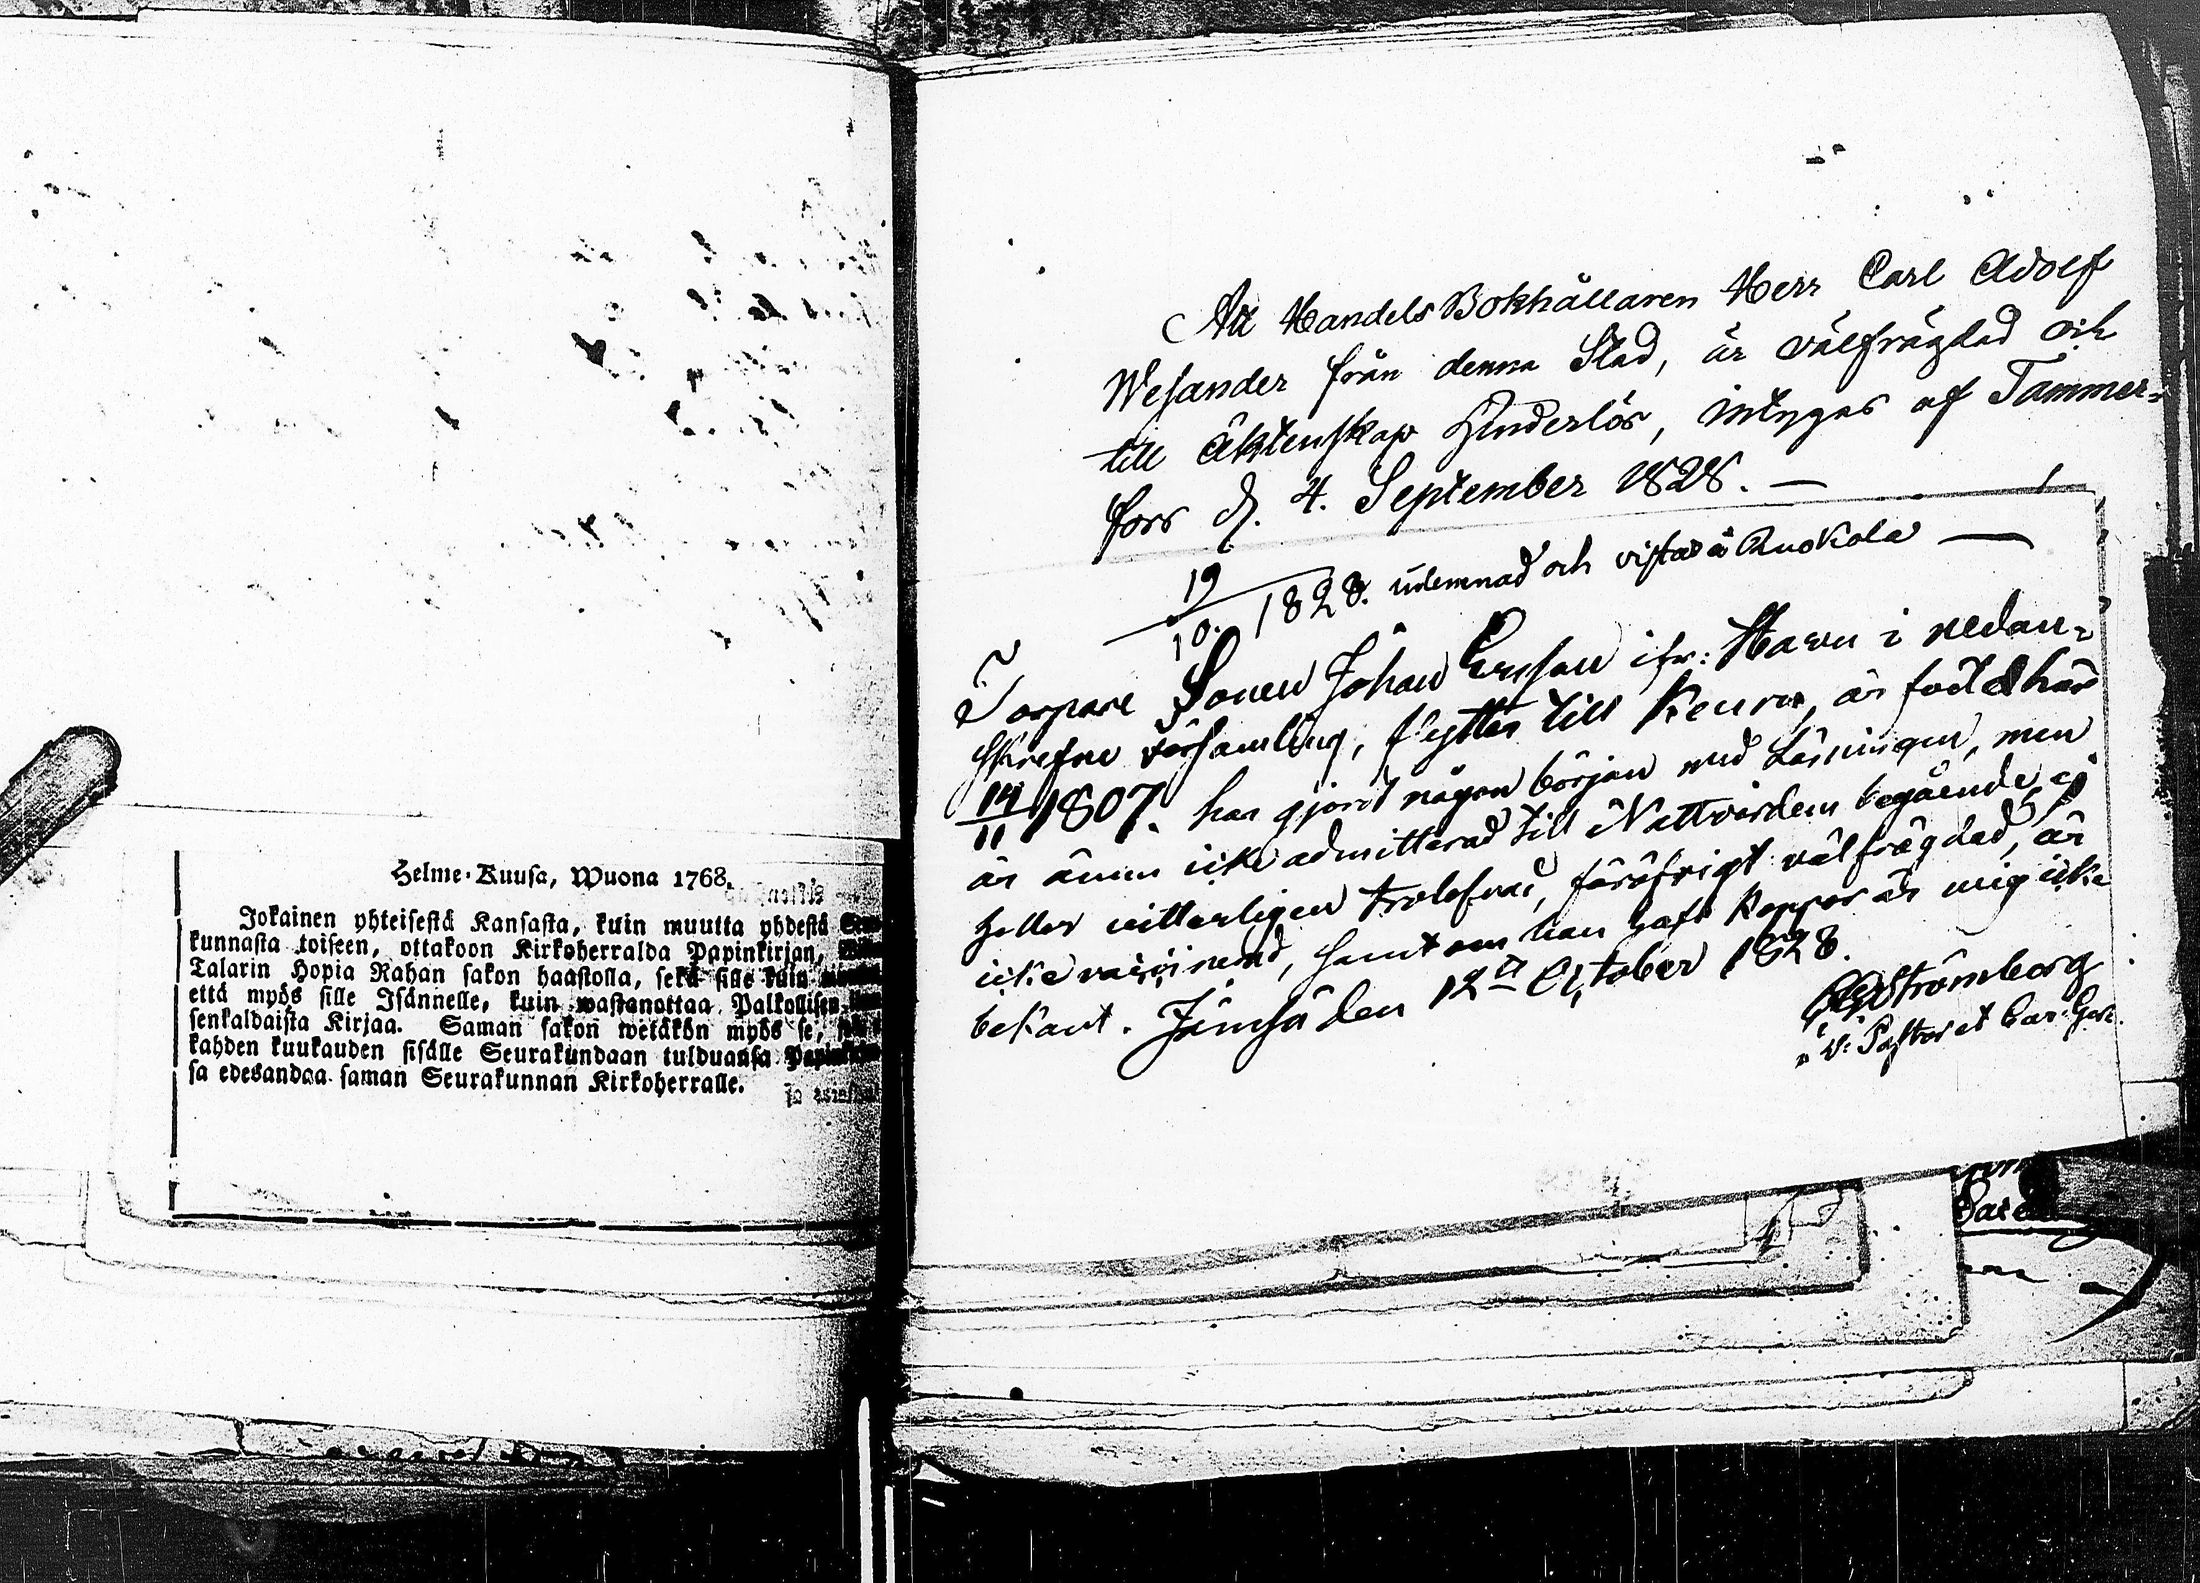 Helme-Kuusa, Wuona 1768.
Jokainen yhteisestä Kansasta, kuin muutta yhdestä Seu
kunnasta toiseen, ottakoon Kirkoherralda Papinkirjan,
Talarin Hopia Rahan sakon haastolla, sekä sille kuin
että myös sille Isännelle, kuin wastanottaa Palkollisen
senkaldaista Kirjaa. Saman sakon wetäkön myös se,
kahden kuukauden sisälle Seurakundaan tulduansa Papin
sa edesandaa saman Seurakunnan Kirkoherralle.
Att Handels Bokhållaren Herr Carl Adolf
Wesander från denna Stad, är välfrägdad och
till Äktenskap hinderlös, intygas af Tammer-
fors d. 4. September 1828. —
19/10. 1828. udemnad och vistas å Ruokola —
Torpare Sonen Johan Ersson ifr: Havu i nedan-
skrefne församling, flyttar till Keuru, är född här
14/11 1807. har gjort någon början med Läsningen, men
är ännu icke admitterad till Nattvardens begående, ej
heller witterligen trolofvad, föröfrigt välfrägdad, är
icke vaccinerad, samt om han haft koppor är mig icke
bekant. Jämsä den 12te October 1828.
Strömberg
v: Pastor et